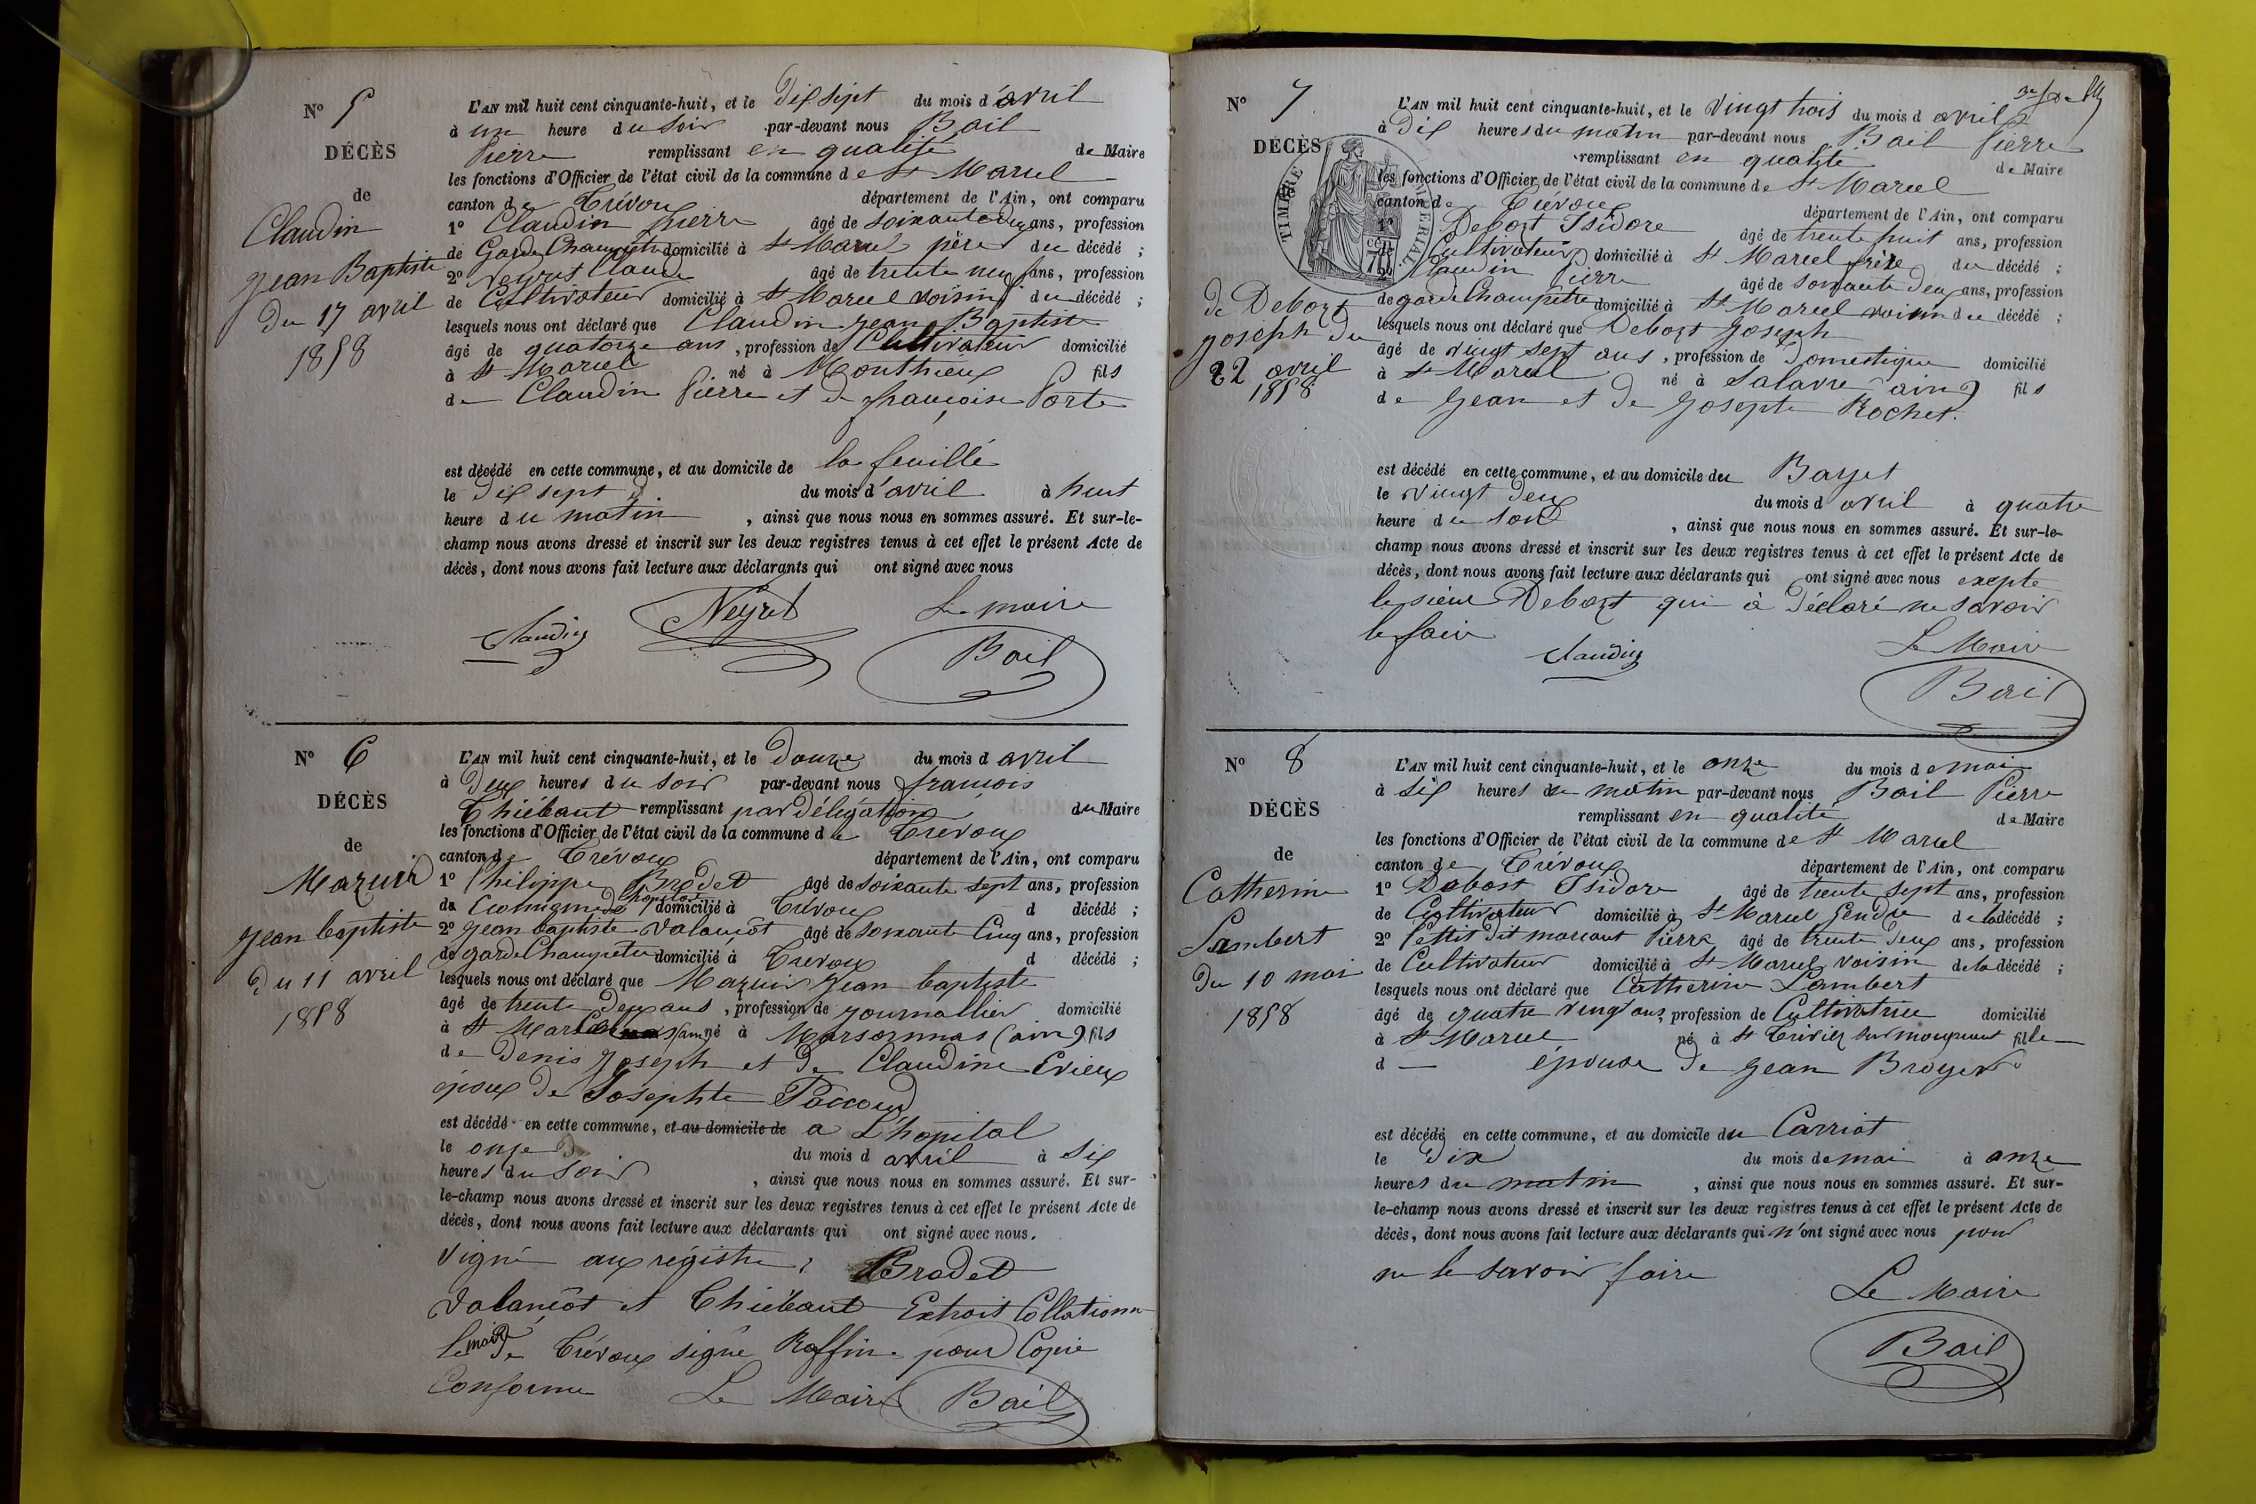 N° 5
DÉCÈS
de
Claudin
Jean Baptiste
Du 17 avril
1858
L'AN mil huit cent cinquante-huit, et le Dix sept du mois d'avril
à un heure du soir par-devant nous Bail
Pierre remplissant en qualité de Maire
les fonctions d'Officier de l'état civil de la commune de St Marcel
canton de Trévoux département de l'Ain, ont comparu
1° Claudin Pierre âgé de soixante deux ans, profession
de Garde Champêtre domicilié à St Marcel père du décédé ;
2° Neyret Claude âgé de trente neuf ans, profession
de Cultivateur domicilié à St Marcel voisin du décédé ;
lesquels nous ont déclaré que Claudin Jean Baptiste
âgé de quatorze ans, profession de Cultivateur domicilié
à St Marcel né à Monthieux fils
de Claudin Pierre et de françoise Porte
est décédé en cette commune, et au domicile de la feuillé
le Dix sept du mois d'avril à huit
heure du matin, ainsi que nous nous en sommes assuré. Et sur-le-
champ nous avons dressé et inscrit sur les deux registres tenus à cet effet le présent Acte de
décès, dont nous avons fait lecture aux déclarants qui ont signé avec nous
Claudin Neyret Le maire
Bail
N° 6
DÉCÈS
de
Mazuir
Jean baptiste
du 11 avril
1858
L'AN mil huit cent cinquante-huit, et le Douze du mois d avril
à Deux heures du soir par-devant nous francois
Thiébaut remplissant par délégation du Maire
les fonctions d'Officier de l'état civil de la commune de Trévoux
canton de Trévoux département de l'Ain, ont comparu
1° Philippe Brodet âgé de soixante sept ans, profession
de hopital domicilié à Trévoux d décédé ;
2° Jean baptiste Valançot âgé de soixante Cinq ans, profession
de garde Champetre domicilié à Trévoux d décédé ;
lesquels nous ont déclaré que Mazuir Jean baptiste
âgé de trente Deux ans, profession de journallier domicilié
à St Marcel né à Marsonnas (ain) fils
de Denis Joseph et de Claudine Evieux
époux de Josephte Paccoud
est décédé en cette commune, et au domicile de a L'hopital
le onze du mois d avril à Six
heures du soir, ainsi que nous nous en sommes assuré. Et sur-
le-champ nous avons dressé et inscrit sur les deux registres tenus à cet effet le présent Acte de
décès, dont nous avons fait lecture aux déclarants qui ont signé avec nous.
signé aux régistre : Brodet
Valançot et Thiébaut Extrait Collationné
le maire de Trévoux signé Raffin. pour Copie
Conforme Le Maire Bail
N° 7
DÉCÈS
de Debozt
Joseph du
22 avril
1858
TIMBRE IMPÉRIAL
L'AN mil huit cent cinquante-huit, et le Vingt trois du mois d avril
à Dix heures du matin par-devant nous Bail Pierre
remplissant en qualité de Maire
les fonctions d'Officier de l'état civil de la commune de St Marcel
canton de Trévoux département de l'Ain, ont comparu
1° Debozt Isidore âgé de trente huit ans, profession
Cultivateur domicilié à St Marcel frère du décédé ;
2° Claudin Pierre âgé de soixante Deux ans, profession
de garde Champêtre domicilié à St Marcel voisin du décédé ;
lesquels nous ont déclaré que Debozt Joseph
âgé de vingt sept ans, profession de Domestique domicilié
à St Marcel né à Salavre ain) fils
de Jean et de Josephte Rochet.
est décédé en cette commune, et au domicile du Bayet
le Vingt Deux du mois d avril à quatre
heure du soir, ainsi que nous nous en sommes assuré. Et sur-le-
champ nous avons dressé et inscrit sur les deux registres tenus à cet effet le présent Acte de
décès, dont nous avons fait lecture aux déclarants qui ont signé avec nous exepte
le sieur Debozt qui à Déclaré ne savoir
le faire
Claudin Le Maire
Bail
N° 8
DÉCÈS
de
Catherine
Lambert
Du 10 mai
1858
L'AN mil huit cent cinquante-huit, et le onze du mois de mai
à Six heures du matin par-devant nous Bail Pierre
remplissant en qualité de Maire
les fonctions d'Officier de l'état civil de la commune de St Marcel
canton de Trévoux département de l'Ain, ont comparu
1° Debost Isidore âgé de trente sept ans, profession
de Cultivateur domicilié à St Marcel Gendre de la décédé ;
2° Pettit dit marcant Pierre âgé de trente Deux ans, profession
de Cultivateur domicilié à St Marcel voisin de la décédé ;
lesquels nous ont déclaré que Catherine Lambert
âgé de quatre vingt ans, profession de Cultivatrice domicilié
à St Marcel né à St Trivier sur moignant fille
d — épouse de Jean Broyer
est décédé en cette commune, et au domicile du Carriat
le Dix du mois de mai à onze
heures du matin, ainsi que nous nous en sommes assuré. Et sur-
le-champ nous avons dressé et inscrit sur les deux registres tenus à cet effet le présent Acte de
décès, dont nous avons fait lecture aux déclarants qui n'ont signé avec nous pour
ne le savoir faire
Le Maire
Bail